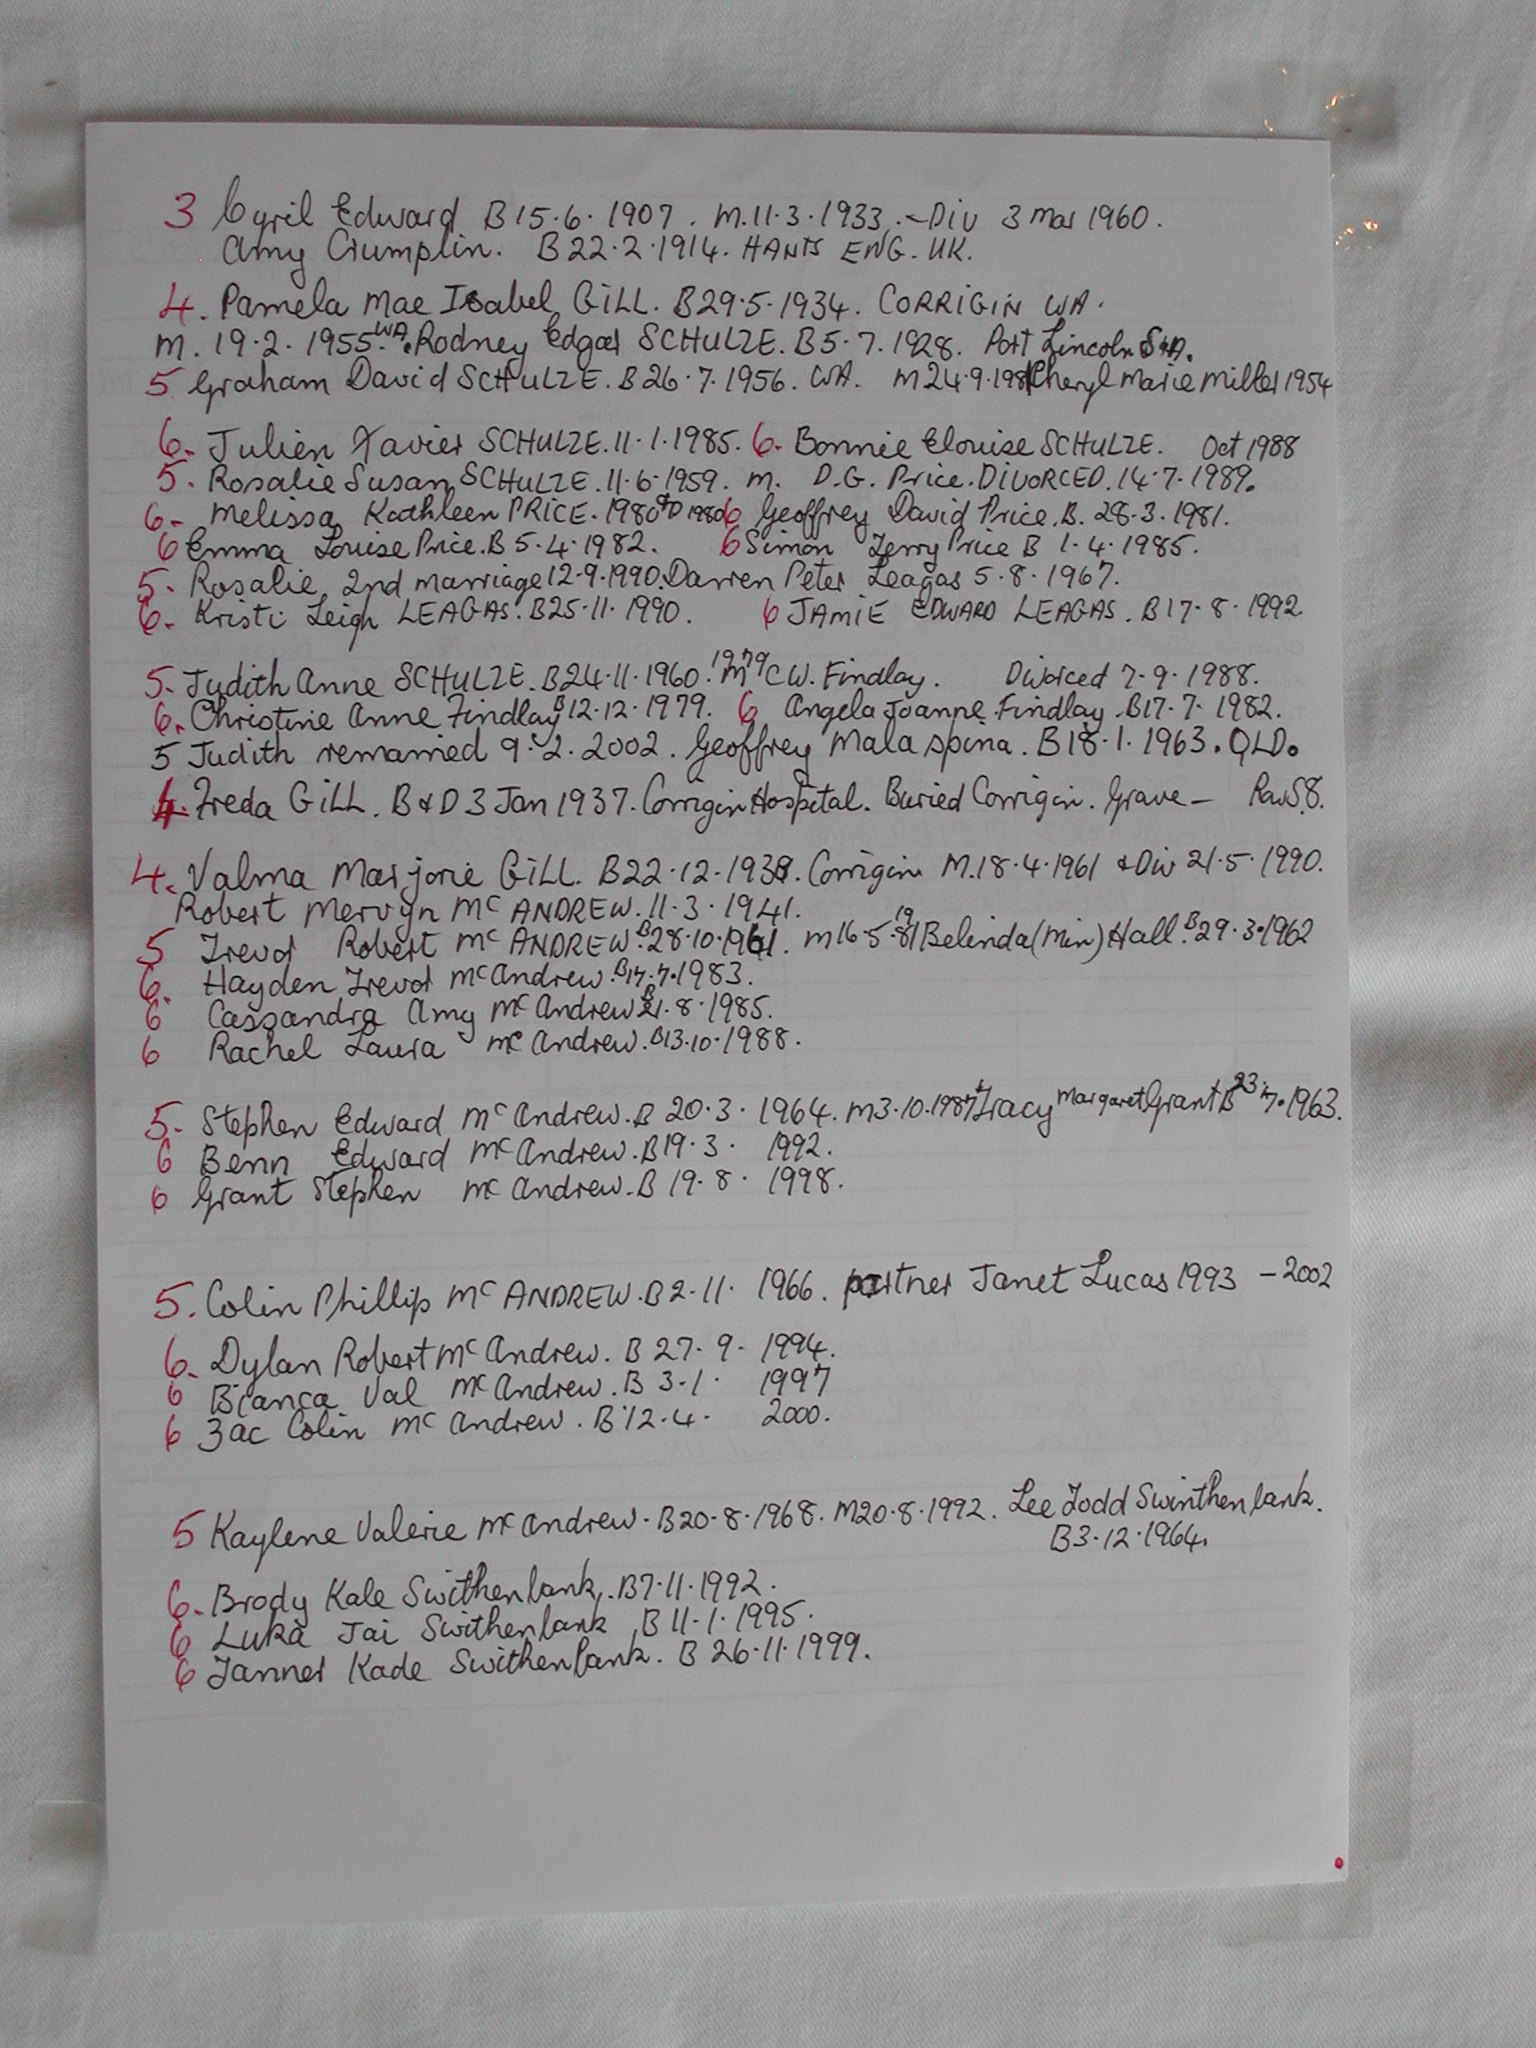 3 Cyril Edward B 15.6.1907. M.11.3.1933.-Div 3 Mar 1960.
Amy Crumplin. B 22.2.1914. HANTS ENG. UK.
4. Pamela Mae Isabel GILL. B29.5.1934. CORRIGIN WA.
M. 19.2.1955. WA. Rodney Edgar SCHULZE. B5.7.1928. Port Lincoln S.A.
5 Graham David SCHULZE. B 26.7.1956. WA. M24.9.1981 Cheryl Marie Miller 1954
6. Julien Xavier SCHULZE. 11.1.1985. 6. Bonnie Elouise SCHULZE. Oct 1988
5. Rosalie Susan SCHULZE. 11.6.1959. m. D.G. Price. DIVORCED. 14.7.1989.
6- Melissa Kathleen PRICE. 1980 & D 1980 6 Geoffrey David Price. B. 28.3.1981.
6 Emma Louise Price. B 5.4.1982. 6 Simon Terry Price B 1.4.1985.
5. Rosalie 2nd marriage 12.9.1990. Darren Peter Leagas 5.8.1967.
6. Kristi Leigh LEAGAS. B25.11.1990. 6 JAMIE EDWARD LEAGAS. B17.8.1992
5. Judith Anne SCHULZE. B24.11.1960. M 1979 C.W. Findlay. Divorced 7.9.1988.
6. Christine Anne Findlay B 12.12.1979. 6 Angela Joanne Findlay. B17.7.1982.
5 Judith remarried 9.2.2002. Geoffrey Malaspina. B18.1.1963. QLD.
4. Freda GILL. B & D 3 Jan 1937. Corrigin Hospital. Buried Corrigin. Grave - Row S.8.
4. Valma Marjorie GILL. B22.12.1938. Corrigin M.18.4.1961 & Div 21.5.1990.
Robert Mervyn McANDREW. 11.3.1941.
5 Trevor Robert McANDREW. B28.10.1961. M16.5.1981 Belinda (Min) Hall. B29.3.1962
6. Hayden Trevor McAndrew. B17.7.1983.
6 Cassandra Amy McAndrew B21.8.1985.
6 Rachel Laura McAndrew. B13.10.1988.
5. Stephen Edward McAndrew. B 20.3.1964. M3.10.1987 Tracy Margaret Grant B 23.7.1963.
6 Benn Edward McAndrew. B19.3.1992.
6 Grant Stephen McAndrew. B 19.8.1998.
5. Colin Phillip McANDREW. B2.11.1966. partner Janet Lucas 1993 - 2002
6. Dylan Robert McAndrew. B 27.9.1994.
6 Bianca Val McAndrew. B 3.1.1997
6 Zac Colin McAndrew. B 12.4.2000.
5 Kaylene Valerie McAndrew. B20.8.1968. M20.8.1992. Lee Todd Swinthenbank.
B3.12.1964.
6. Brody Kale Swithenbank. B7.11.1992.
6 Luka Jai Swithenbank B 11.1.1995.
6 Tanner Kade Swithenbank. B 26.11.1999.